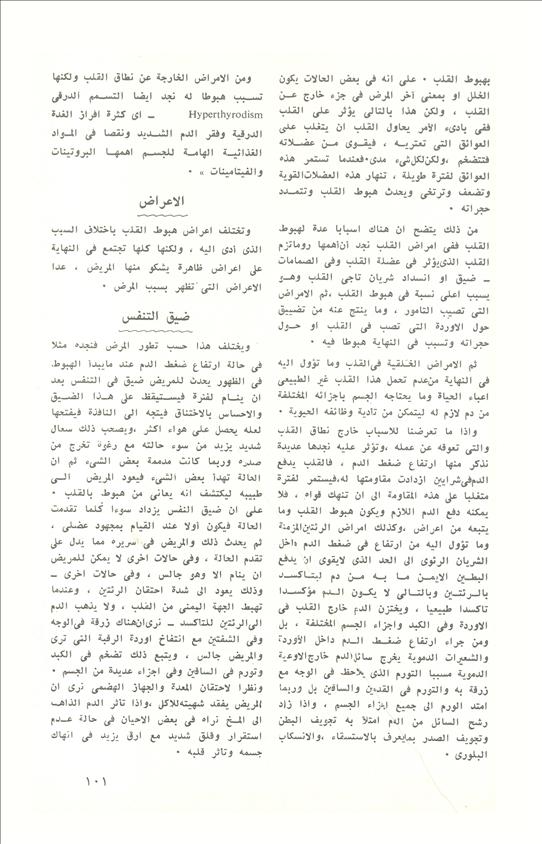 بهبوط القلب ٠ على انه فى بعض الحالات يكون
الخلل او بمعنى آخر المرض فى جزء خارج عن
القلب ، ولكن هذا بالتالى يؤثر على القلب
ففى بادىء الأمر يحاول القلب ان يتغلب على
العوائق التى تعتريه ، فيقوى من عضلاته
فتتضخم ،ولكن لكل شىء مدى٠فعندما تستمر هذه
العوائق لفترة طويلة ، تنهار هذه العضلات القوية
وتضعف وترتخى ويحدث هبوط القلب وتتمدد
حجراته ٠
من ذلك يتضح ان هناك اسبابا عدة لهبوط
القلب ففى امراض القلب نجد أن أهمها روماتزم
القلب الذى يؤثر فى عضلة القلب وفى الصمامات
ـ ضيق او انسداد شريان تاجى القلب وهو
يسبب اعلى نسبة فى هبوط القلب ،ثم الامراض
التى تصيب التامور ، وما ينتج عنه من تضييق
حول الاوردة التى تصب فى القلب او حول
حجراته وتسبب فى النهاية هبوطا فيه ٠
ثم الامراض الخلقية فى القلب وما تؤول اليه
فى النهاية من عدم تحمل هذا القلب غير الطبيعى
اعباء الحياة وما يحتاجه الجسم باجزائه المختلفة
من دم لازم له ليتمكن من تادية وظائفه الحيوية ٠
واذا ما تعرضنا للأسباب خارج نطاق القلب
والتى تعوقه عن عمله ،وتؤثر عليه نجدها عديدة
نذكر منها ارتفاع ضغط الدم ، فالقلب يدفع
الدم فى شرايين ازدادت مقاومتها له،فيستمر لفترة
متغلبا على هذه المقاومة الى ان تنهك قواه ، فلا
يمكنه دفع الدم اللازم ويكون هبوط القلب وما
يتبعه من اعراض ،وكذلك امراض الرئتين المزمنة
وما تؤول اليه من ارتفاع فى ضغط الدم داخل
الشريان الرئوى الى الحد الذى لايقوى ان يدفع
البطين الايمن ما به من دم ليتأكسد
بالرئتين وبالتالى لا يكون الدم مؤكسدا
تاكسدا طبيعيا ، ويختزن الدم خارج القلب فى
الاوردة وفى الكبد واجزاء الجسم المختلفة ، بل
ومن جراء ارتفاع ضغط الدم داخل الأوردة
والشعيرات الدموية يخرج سائل الدم خارج الاوعية
الدموية مسببا التورم الذى يلاحظ فى الوجه مع
زرقة به والتورم فى القدمين والساقين بل وربما
امتد الورم الى جميع اجزاء الجسم ، واذا زاد
رشح السائل من الدم امتلأ به تجويف البطن
وتجويف الصدر بمايعرف بالاستسقاء ،والانسكاب
البلورى ٠
ومن الامراض الخارجة عن نطاق القلب ولكنها
تسبب هبوطا له نجد ايضا التسمم الدرقى
Hyperthyrodism ـ اى كثرة افراز الغدة
الدرقية وفقر الدم الشديد ونقصا فى المواد
الغذائية الهامة للجسم اهمها البروتينات
والفيتامينات » ٠
الاعراض
وتختلف اعراض هبوط القلب باختلاف السبب
الذى أدى اليه ، ولكنها كلها تجتمع فى النهاية
على اعراض ظاهرة يشكو منها المريض ، عدا
الاعراض التى تظهر بسبب المرض ٠
ضيق التنفس
ويختلف هذا حسب تطور المرض فنجده مثلا
فى حالة ارتفاع ضغط الدم عند مايبدأ الهبوط
فى الظهور يحدث للمريض ضيق فى التنفس بعد
ان ينام لفترة فيستيقظ على هذا الضيق
والاحساس بالاختناق فيتجه الى النافذة فيفتحها
لعله يحصل على هواء اكثر ،ويصحب ذلك سعال
شديد يزيد من سوء حالته مع رغوة تخرج من
صدره وربما كانت مدممة بعض الشىء ثم ان
الحالة تهدأ بعض الشىء فيعود المريض الى
طبيبه ليكتشف انه يعانى من هبوط بالقلب ٠
على ان ضيق النفس يزداد سوءا كلما تقدمت
الحالة فيكون أولا عند القيام بمجهود عضلى ،
ثم يحدث ذلك والمريض فى سريره مما يدل على
تقدم الحالة ، وفى حالات اخرى لا يمكن للمريض
ان ينام الا وهو جالس ، وفى حالات اخرى ـ
وذلك يعود الى شدة احتقان الرئتين ، وعندما
تهبط الجهة اليمنى من القلب ، ولا يذهب الدم
الى الرئتين للتاكسد ـ نرى ان هناك زرقة فى الوجه
وفى الشفتين مع انتفاخ اوردة الرقبة التى ترى
والمريض جالس ، ويتبع ذلك تضخم فى الكبد
وتورم فى الساقين وفى اجزاء عديدة من الجسم ٠
ونظرا لاحتقان المعدة والجهاز الهضمى نرى ان
المريض يفقد شهيته للاكل ،واذا تاثر الدم الذاهب
الى المخ نراه فى بعض الاحيان فى حالة عدم
استقرار وقلق شديد مع ارق يزيد فى انهاك
جسمه وتاثر قلبه ٠
١٠١